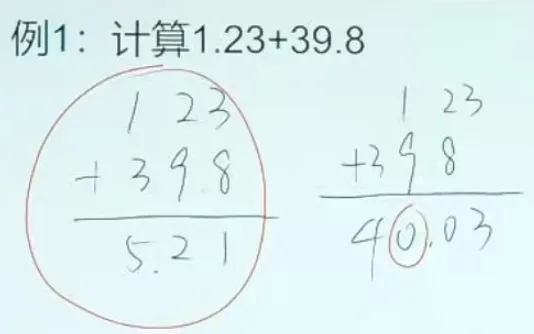 例1：计算1.23+39.8
1 23
+39.8
5.21
1 23
+39 8
40.03